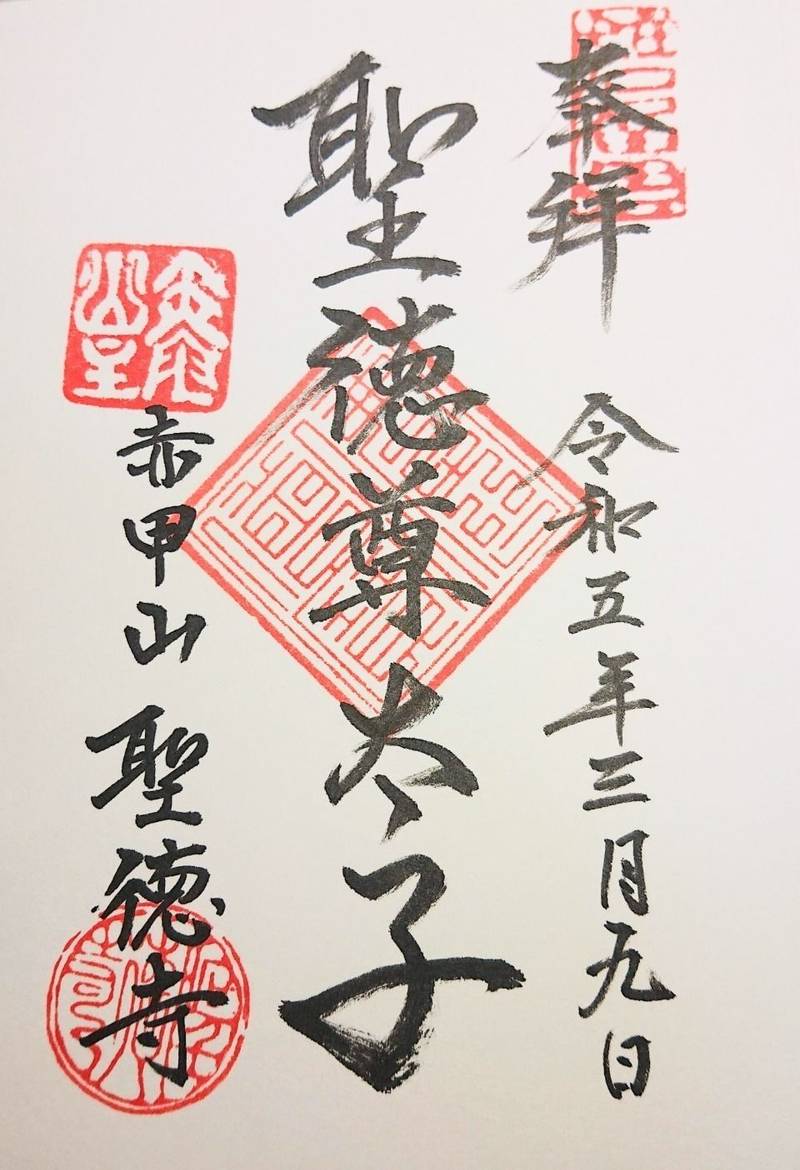 奉拝
令和五年三月九日
聖徳尊太子
赤甲山 聖徳寺